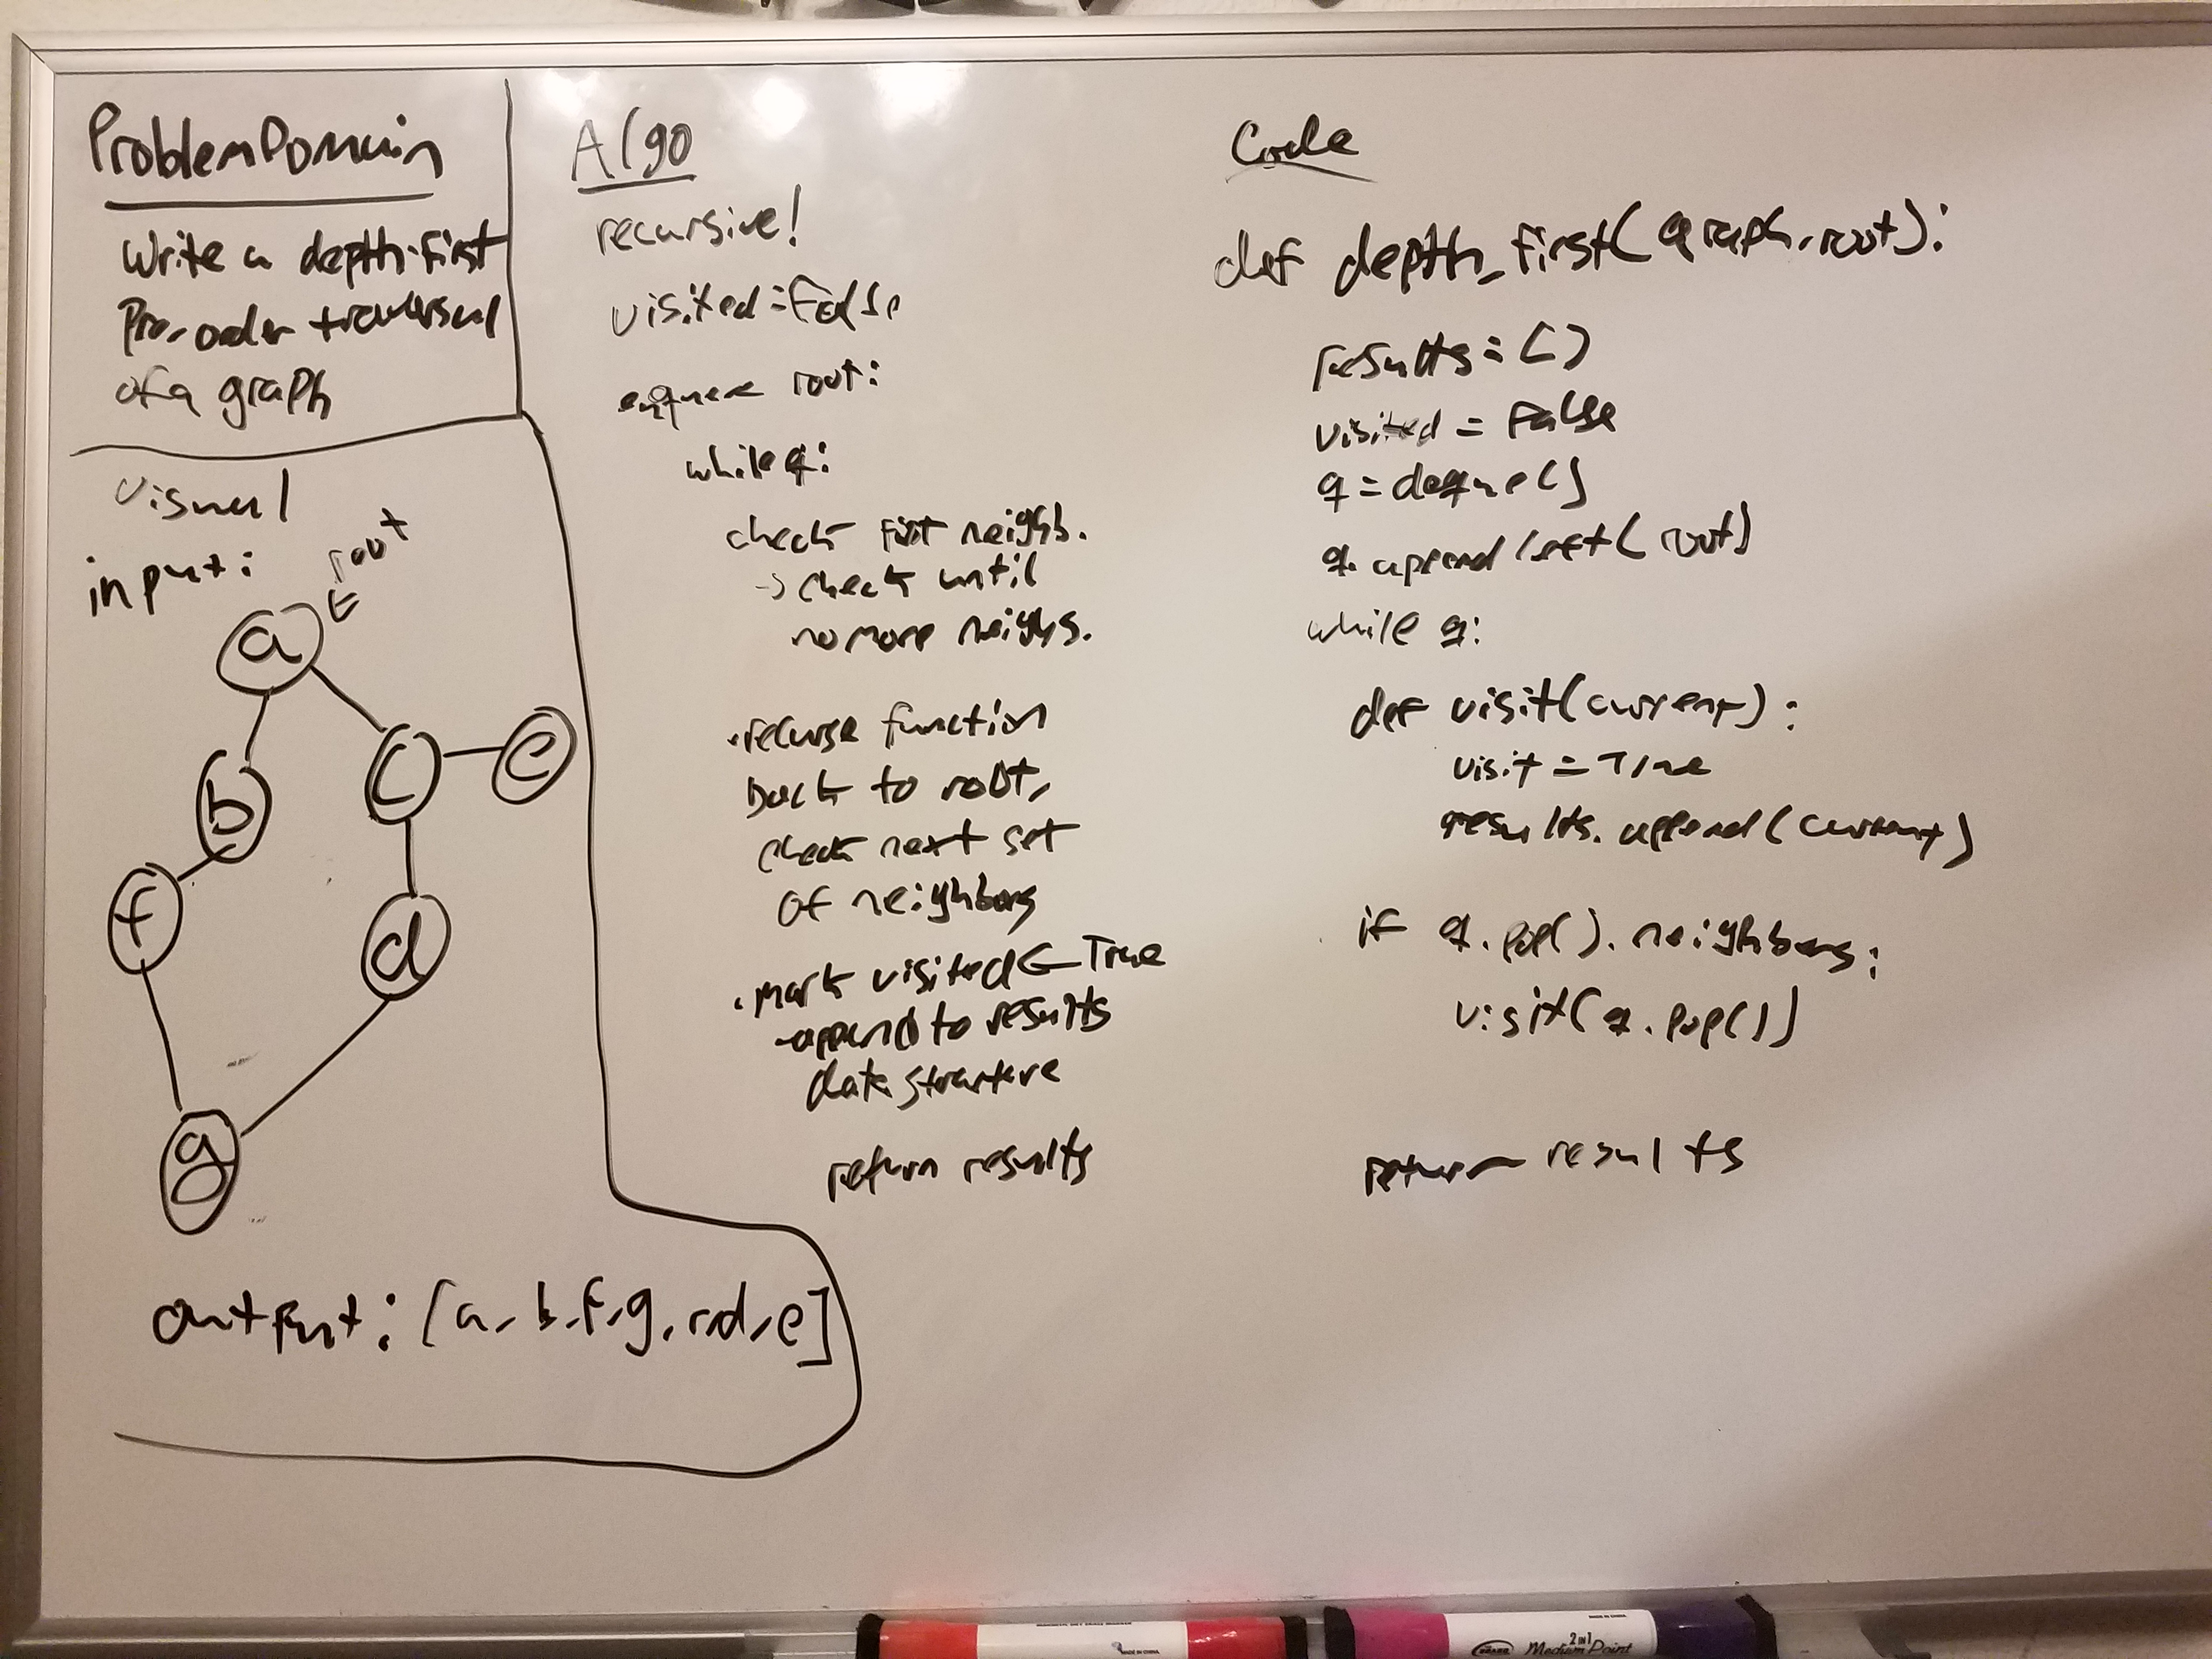 Problem Domain
Write a depth-first
Pre-order traversal
of a graph
visual
input:
root
a
b
c
e
f
d
g
output: [a, b, f, g, c, d, e]
Algo
recursive!
visited = False
enqueue root:
while q:
check first neighb.
→ check until
no more neighs.
• recurse function
back to root,
check next set
of neighbors
• mark visited ← True
- append to results
data structure
return results
Code
def depth_first(graph, root):
results = []
visited = False
q = deque()
q.appendleft(root)
while q:
def visit(current):
visit = True
results.append(current)
if q.pop().neighbors:
visit(q.pop())
return results
MADE IN CHINA
2 IN 1
Medium Point
MADE IN CHINA